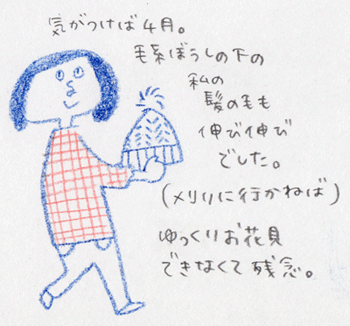 気がつけば4月。
毛糸ぼうしの下の
私の
髪の毛も
伸び伸び
でした。
(メリリに行かねば)
ゆっくりお花見
できなくて残念。